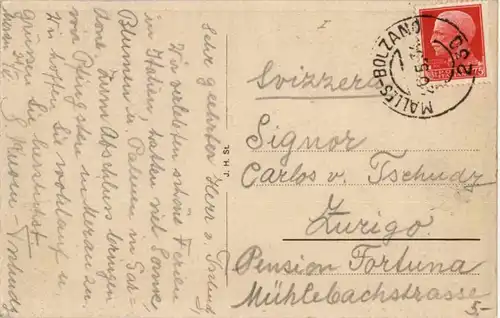 Sehr geehrter Herr v. Tschudi,
Wir erlebten schöne Ferien
in Italien, hatten viel Sonne,
Blumen u. Palmen im Gar-
done. Zum Abschluss bringen
wir Pfingsten in Meran zu.
Wir hoffen Sie wohlauf u.
grüssen Sie herzlichst
Meran
J. H. St.
MALLES-BOLZANO
Svizzera
Signor
Carlos v. Tschudi
Zurigo
Pension Fortuna
Mühlebachstrasse
5-